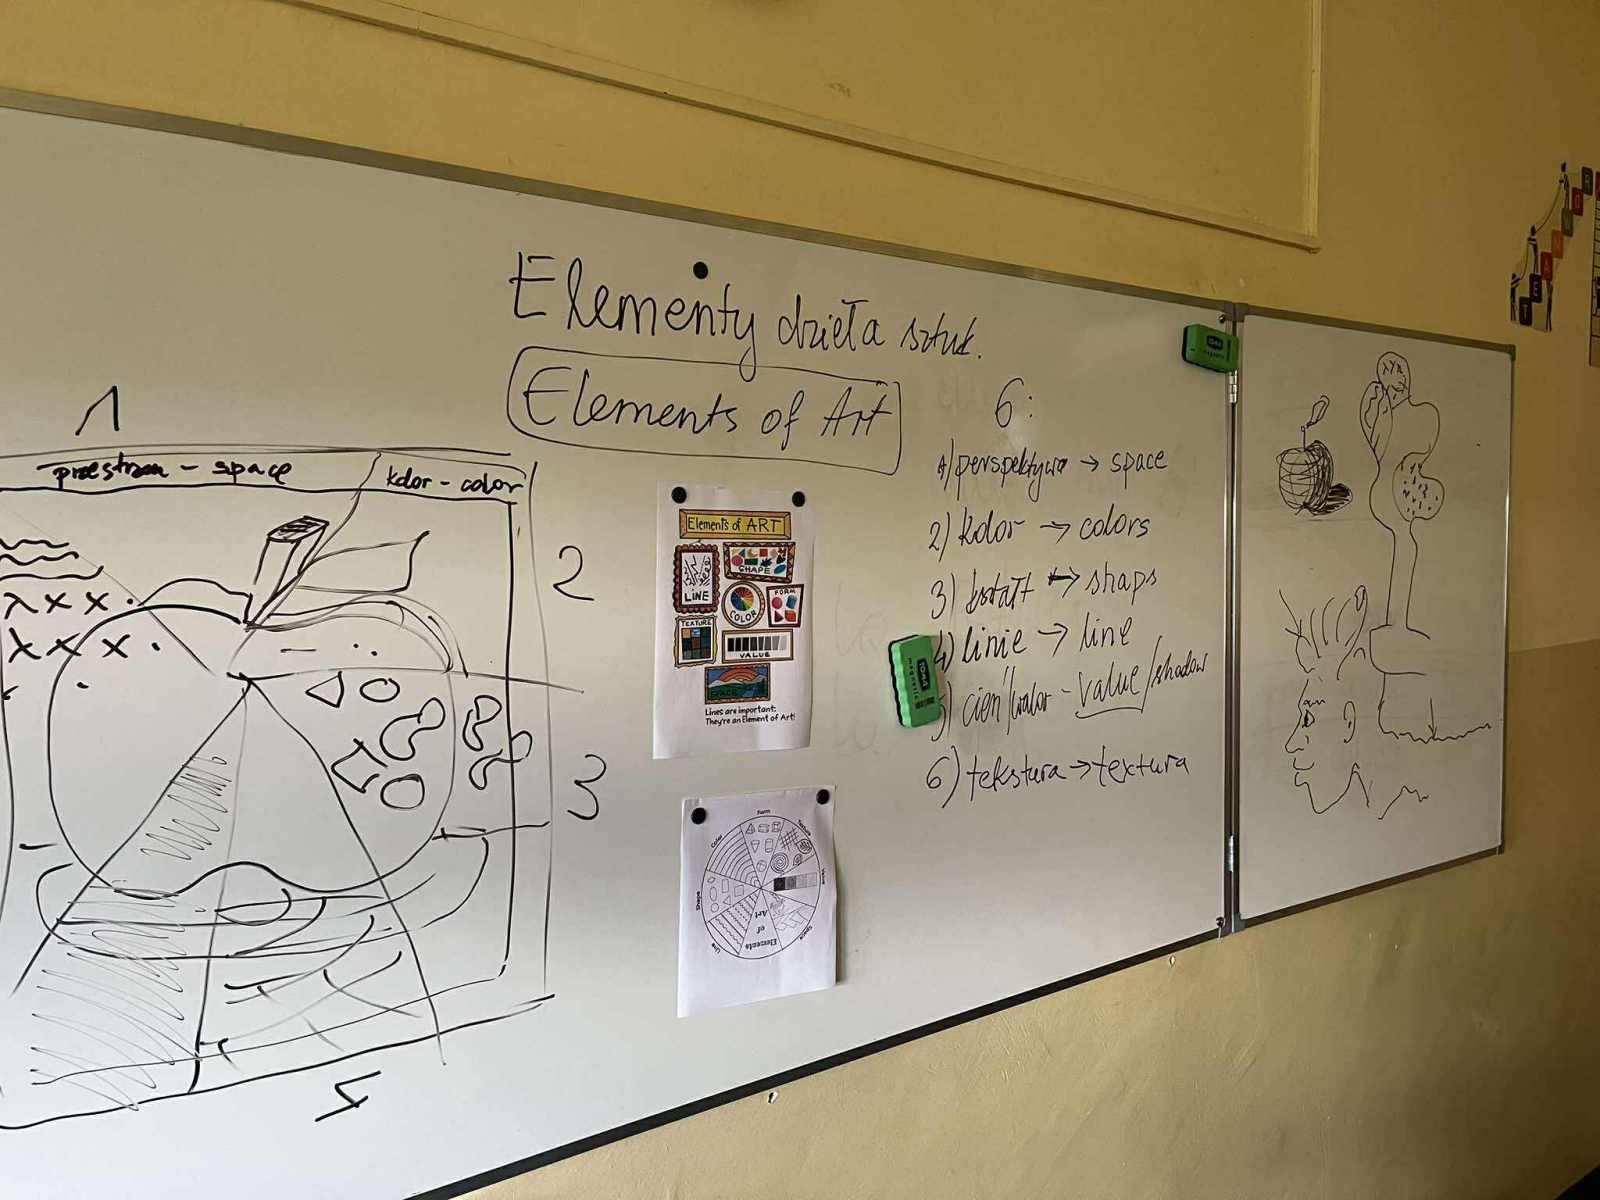 Elementy dzieła sztuk.
Elements of Art
1
przestrzen - space
kolor - color
2
3
6:
1) perspektywa → space
2) kolor → colors
3) kształt → shaps
4) linie → line
5) cień/walor - value/shadow
6) tekstura → textura
Elements of ART
LINE
SHAPE
FORM
COLOR
TEXTURE
VALUE
SPACE
Lines are important:
They're an Element of Art!
Form
Texture
Value
Space
Line
Shape
Color
Elements
of
Art
magnetic
magnetic